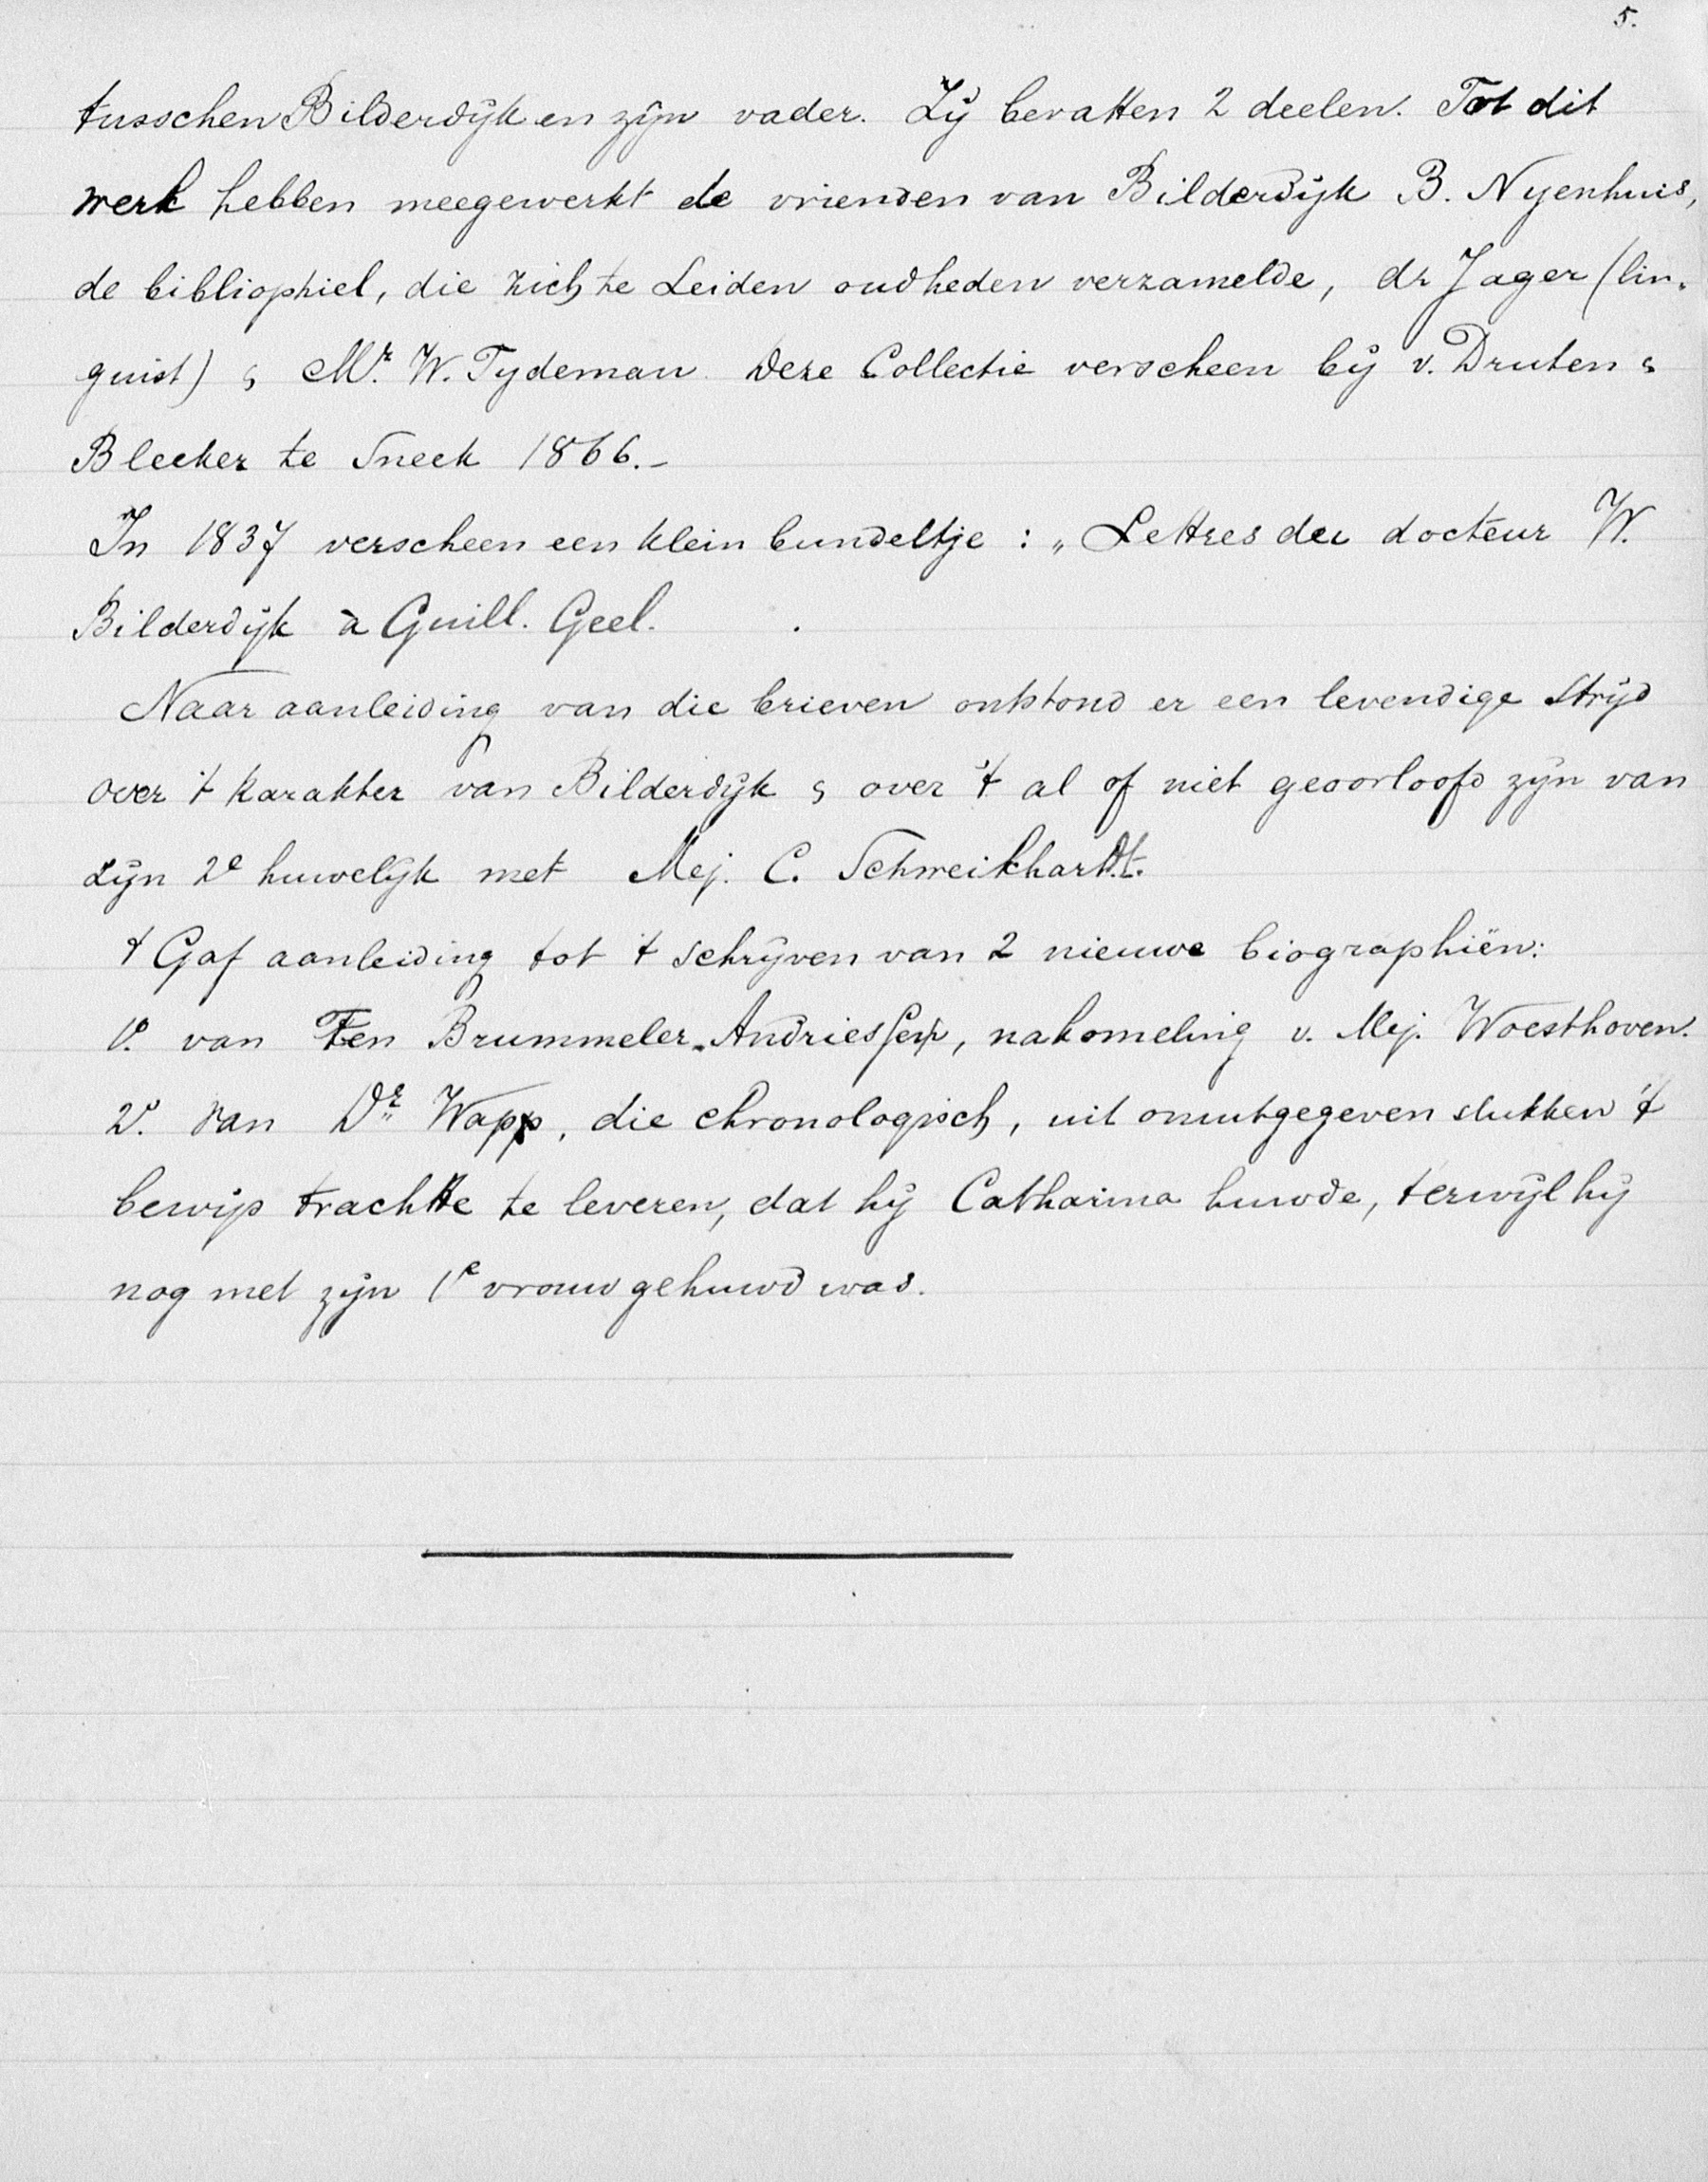 5.
tusschen Bilderdijk en zijn vader. Zij bevatten 2 deelen. Tot dit
werk hebben meegewerkt de vrienden van Bilderdijk B. Nyenhuis,
de bibliophiel, die zich te Leiden oudheden verzamelde, dr Jager (lin-
guist) & Mr. W. Tydeman. Deze Collectie verscheen bij v. Druten &
Bleeker te Sneek 1866.-
In 1837 verscheen een klein bundeltje : „Lettres du docteur W.
Bilderdijk à Guill. Geel.
Naar aanleiding van die brieven ontstond er een levendige strijd
over 't karakter van Bilderdijk & over 't al of niet geoorloofd zijn van
zijn 2e huwelijk met Mej. C. Schweikhardt.
't Gaf aanleiding tot 't schrijven van 2 nieuwe biographiën:
1o. van Ten Brummeler-Andriessen, nakomeling v. Mej. Woesthoven.
2o. van Dr Wapp, die chronologisch, uit onuitgegeven stukken 't
bewijs trachtte te leveren, dat hij Catharina huwde, terwijl hij
nog met zijn 1e vrouw gehuwd was.